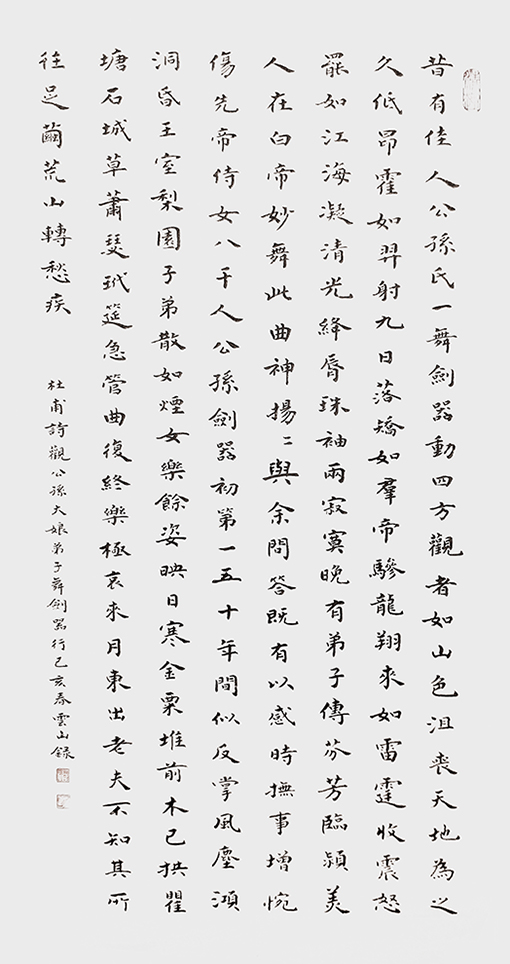 昔有佳人公孫氏一舞劍器動四方觀者如山色沮喪天地為之
久低昂㸌如羿射九日落矯如羣帝驂龍翔來如雷霆收震怒
罷如江海凝清光絳脣珠袖兩寂寞晚有弟子傳芬芳臨潁美
人在白帝妙舞此曲神揚〻與余問答既有以感時撫事增惋
傷先帝侍女八千人公孫劍器初第一五十年間似反掌風塵澒
洞昏王室梨園子弟散如煙女樂餘姿映日寒金粟堆前木已拱瞿
塘石城草蕭瑟玳筵急管曲復終樂極哀來月東出老夫不知其所
往足繭荒山轉愁疾
杜甫詩觀公孫大娘弟子舞劍器行己亥春雲山錄